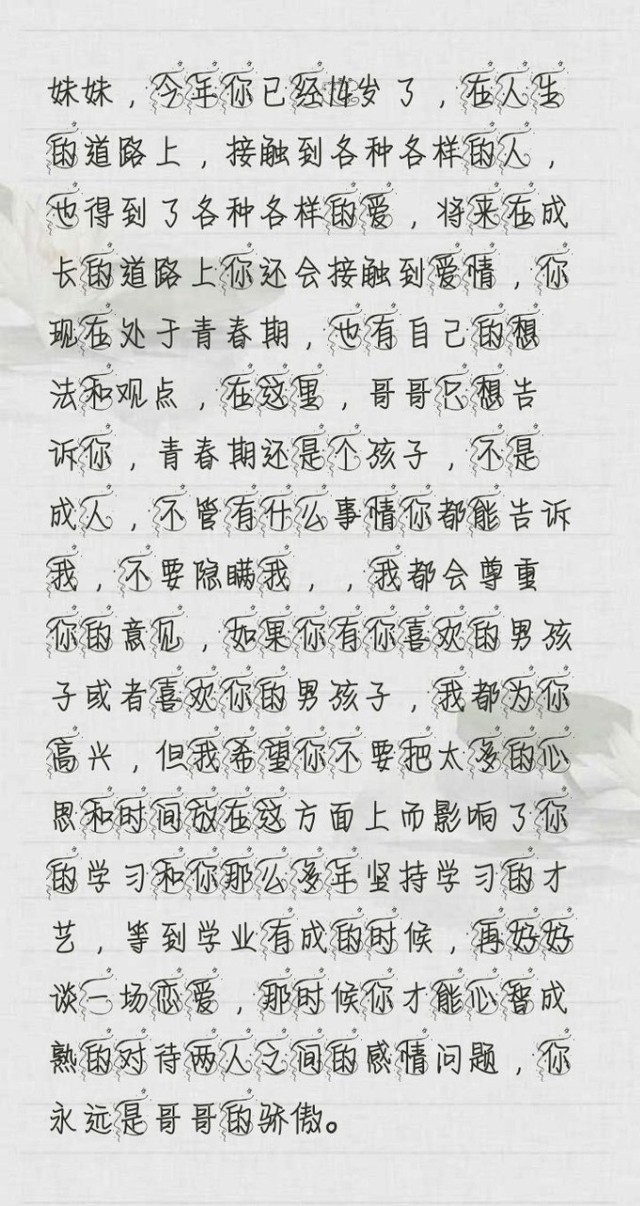 妹妹，今年你已经14岁了，在人生
的道路上，接触到各种各样的人，
也得到了各种各样的爱，将来在成
长的道路上你还会接触到爱情，你
现在处于青春期，也有自己的想
法和观点，在这里，哥哥只想告
诉你，青春期还是个孩子，不是
成人，不管有什么事情你都能告诉
我，不要隐瞒我，，我都会尊重
你的意见，如果你有你喜欢的男孩
子或者喜欢你的男孩子，我都为你
高兴，但我希望你不要把太多的心
思和时间放在这方面上而影响了你
的学习和你那么多年坚持学习的才
艺，等到学业有成的时候，再好好
谈一场恋爱，那时候你才能心智成
熟的对待两人之间的感情问题，你
永远是哥哥的骄傲。